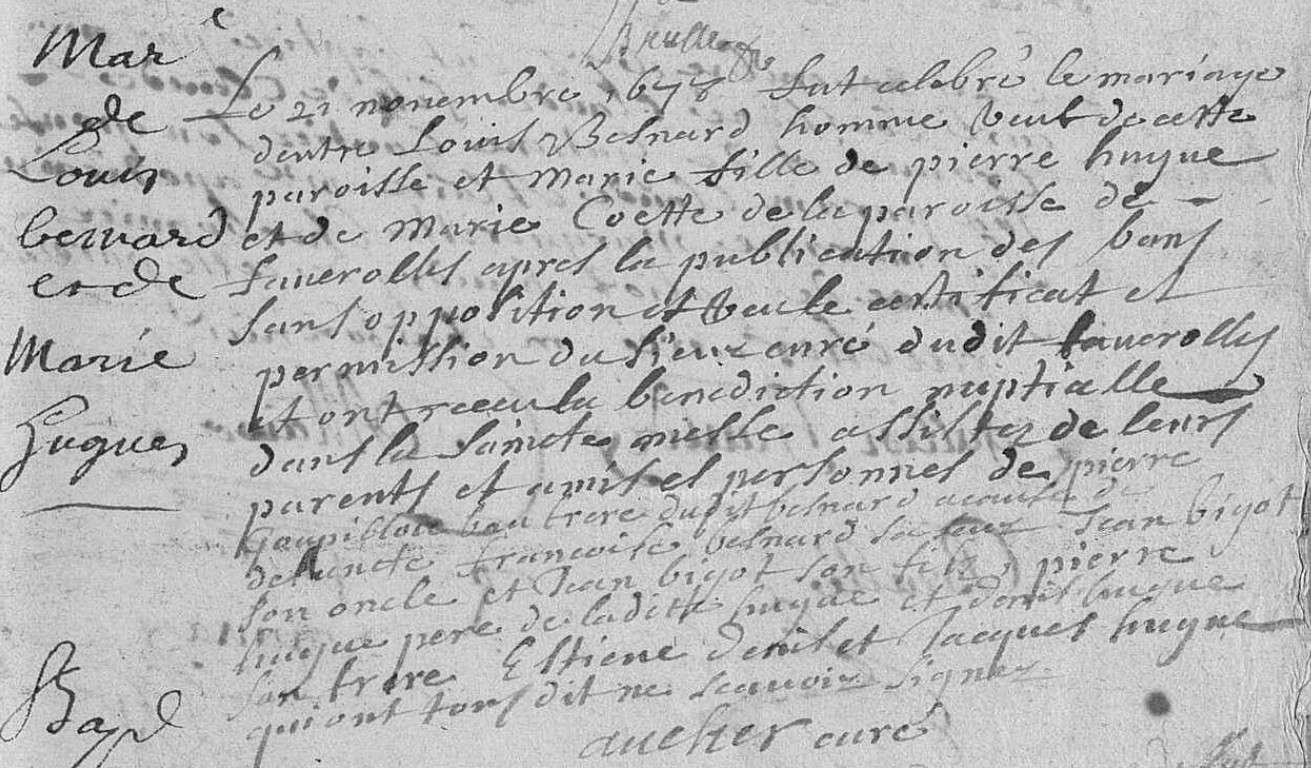 Brulle
Mar e
de
Louis
bernard
et de
Marie
Hugues
Le 21 novembre 1678 fut celebré le mariage
dentre Louis Besnard homme veuf de cette
paroisse et Marie fille de pierre hugue
et de Marie Coette de la paroisse de -
faverolles apres la publication des bans
sans opposition et veu le certificat et
permission du sieur curé dudit faverolles
et ont receu la benediction nuptialle
dans la saincte messe assistez de leurs
parents et amis es personnes de pierre
Goupillou beau frere dudit besnard a cause de
defuncte francoise besnard sa seur Jean bigot
son oncle et Jean bigot son filz, pierre
hugue pere de laditte hugue et denis hugue
son frere Estiene denis et Jacques hugue
qui ont tous dit ne scavoir signer
aucher curé
Bap